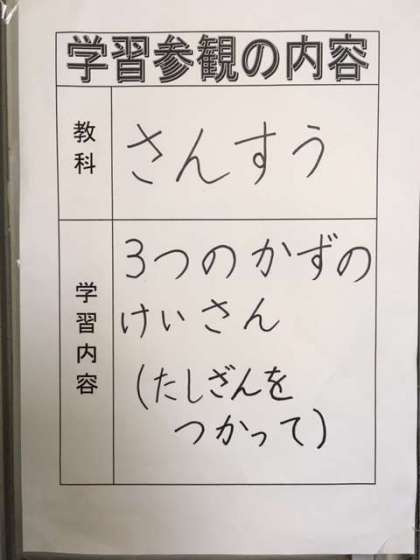 学習参観の内容
教科
さんすう
学習内容
3つのかずの
けいさん
(たしざんを
つかって)